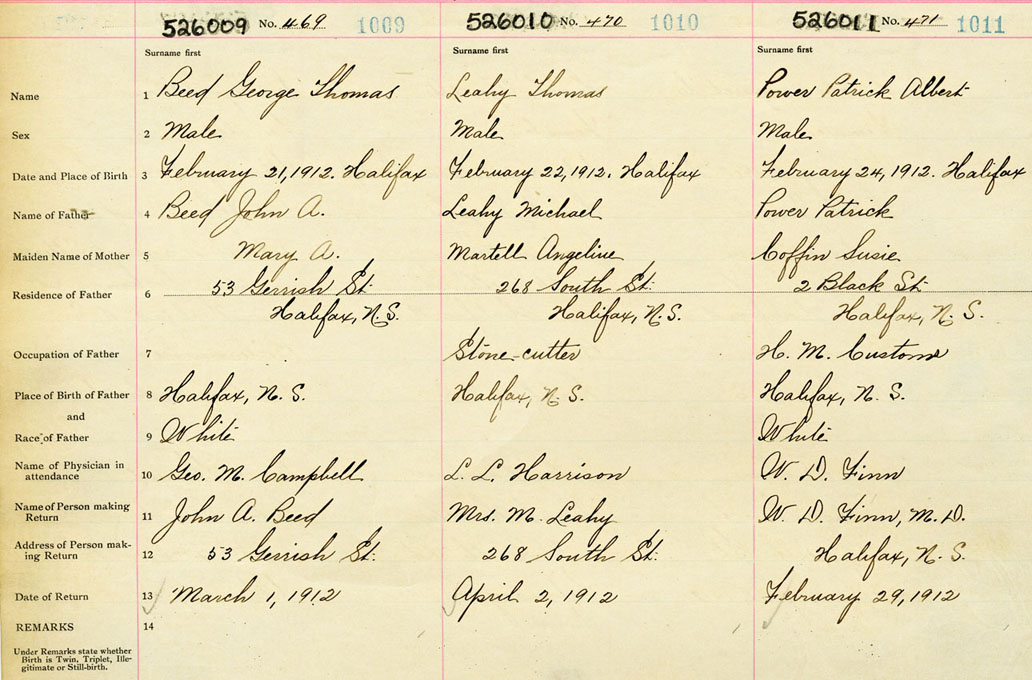 526009 No. 469 1009 526010 No. 470 1010 526011 No. 471 1011
Surname first Surname first Surname first
Name 1 Beed George Thomas Leahy Thomas Power Patrick Albert
Sex 2 Male Male Male
Date and Place of Birth 3 February 21, 1912. Halifax February 22, 1912. Halifax February 24, 1912. Halifax
Name of Father 4 Beed John A. Leahy Michael Power Patrick
Maiden Name of Mother 5 Mary A. Martell Angeline Coffin Susie
Residence of Father 6 53 Gerrish St. 268 South St. 2 Black St.
Halifax, N.S. Halifax, N.S. Halifax, N.S.
Occupation of Father 7 Stone-cutter H. M. Customs
Place of Birth of Father 8 Halifax, N.S. Halifax, N.S. Halifax, N.S.
and
Race of Father 9 White White
Name of Physician in
attendance 10 Geo. M. Campbell L. L. Harrison W. D. Finn
Name of Person making
Return 11 John A. Beed Mrs. M. Leahy W. D. Finn, M.D.
Address of Person mak-
ing Return 12 53 Gerrish St. 268 South St. Halifax, N.S.
Date of Return 13 March 1, 1912 April 2, 1912 February 29, 1912
REMARKS 14
Under Remarks state whether
Birth is Twin, Triplet, Ille-
gitimate or Still-birth.